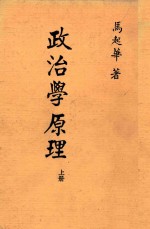 馬起華 著
政治學原理
上冊